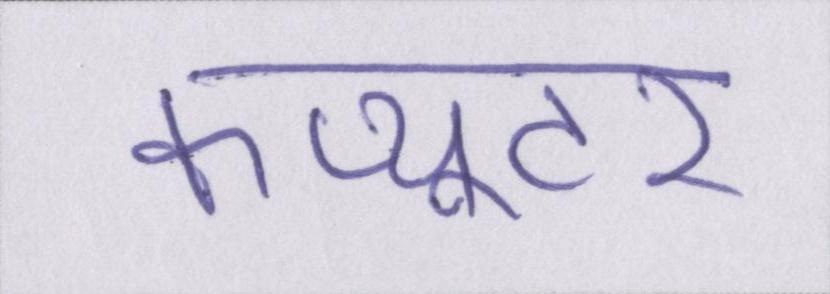 कप्यूटर